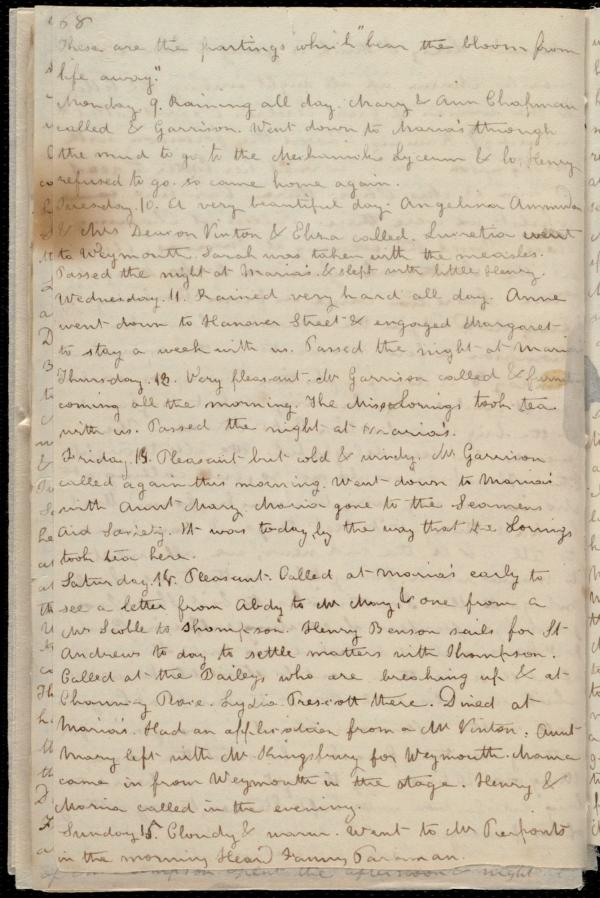 68
These are the partings which "bear the bloom from
life away."
Monday. 9. Raining all day. Mary & Ann Chapman
called & Garrison. Went down to Maria's through
the mud to go to the Mechanicks Lyceum & lo, Henry
refused to go. so came home again.
Tuesday. 10. A very beautiful day. Angelina Ammidon
& Mrs Deacon Vinton & Ehza called. Lucretia went
to Weymouth. Sarah was taken with the measles.
Passed the night at Maria's. & slept with little Henry.
Wednesday. 11. Rained very hard all day. Anne
went down to Hanover Street & engaged Margaret
to stay a week with us. Passed the night at Maria
Thursday. 12. Very pleasant. Mr Garrison called &
coming all the morning. The Miss Lorings took tea
with us. Passed the night at Maria's.
Friday. 13. Pleasant but cold & windy. Mr Garrison
called again this morning. Went down to Maria's
with Aunt Mary. Maria gone to the Seamens
Aid Society. It was today, by the way that the Lorings
took tea here.
Saturday. 14. Pleasant. Called at Maria's early to
see a letter from Abdy to Mr May, & one from a
Mr Scoble to Thompson. Henry Benson sails for St
Andrews to day to settle matters with Thompson.
Called at the Baileys who are breaking up & at
Chauncy Place. Lydia Prescott there. Dined at
Maria's. Had an application from a Mr Vinton. Aunt
Mary left with Mr Kingsbury for Weymouth. Mama
came in from Weymouth in the stage. Henry &
Maria called in the evening.
Sunday 15. Cloudy & warm. Went to Mr Pierponts
in the morning Heard Farman.
spent the afternoon & night